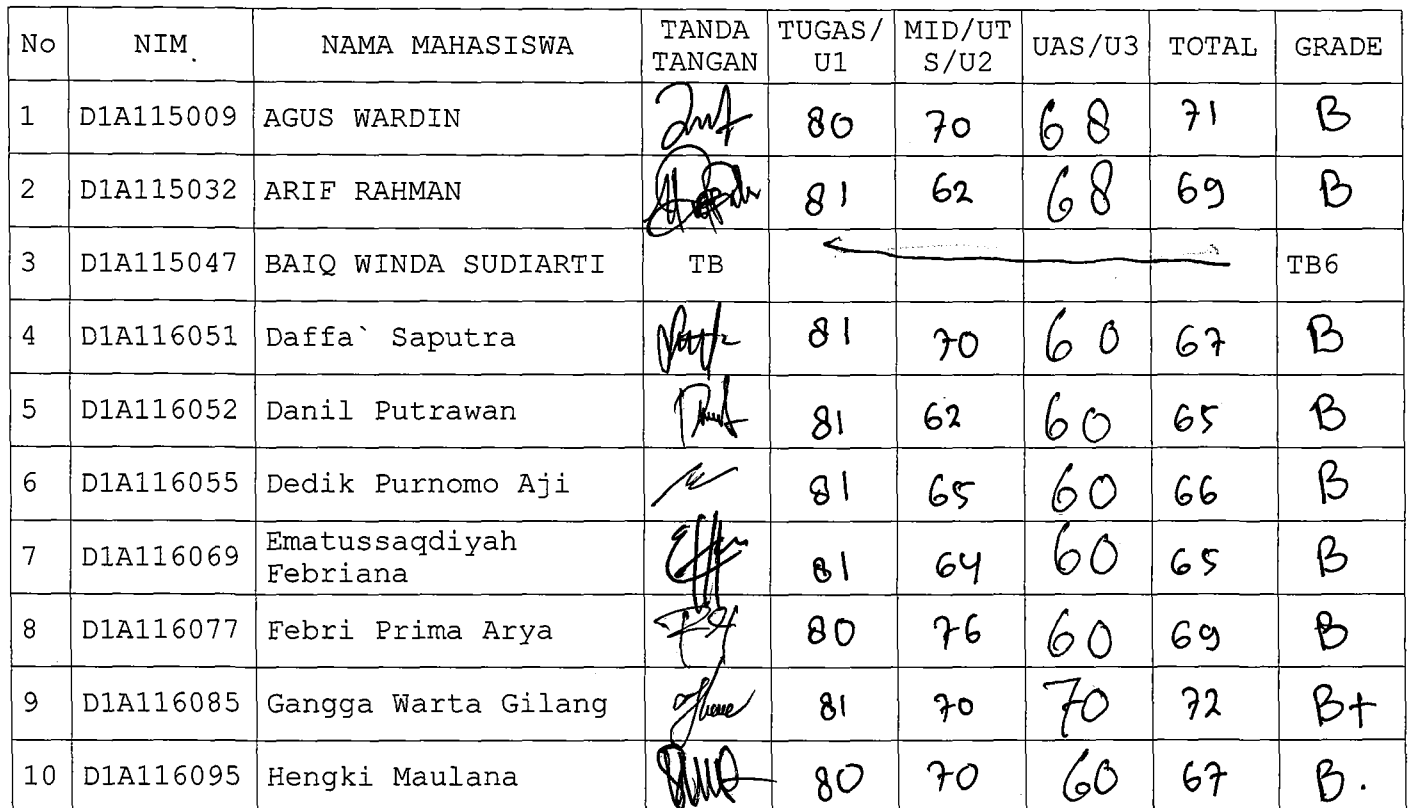 No NIM NAMA MAHASISWA TANDA TANGAN TUGAS/ U1 MID/UT S/U2 UAS/U3 TOTAL GRADE
1 D1A115009 AGUS WARDIN 80 70 68 71 B
2 D1A115032 ARIF RAHMAN 81 62 68 69 B
3 D1A115047 BAIQ WINDA SUDIARTI TB TB6
4 D1A116051 Daffa` Saputra 81 70 60 67 B
5 D1A116052 Danil Putrawan 81 62 60 65 B
6 D1A116055 Dedik Purnomo Aji 81 65 60 66 B
7 D1A116069 Ematussaqdiyah Febriana 81 64 60 65 B
8 D1A116077 Febri Prima Arya 80 76 60 69 B
9 D1A116085 Gangga Warta Gilang 81 70 70 72 B+
10 D1A116095 Hengki Maulana 80 70 60 67 B.